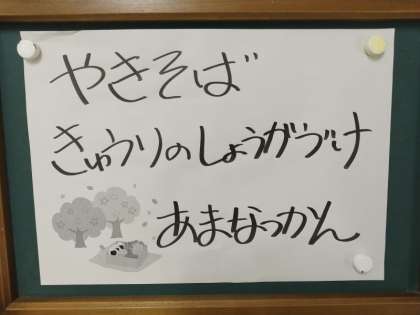 やきそば
きゅうりのしょうがづけ
あまなつかん